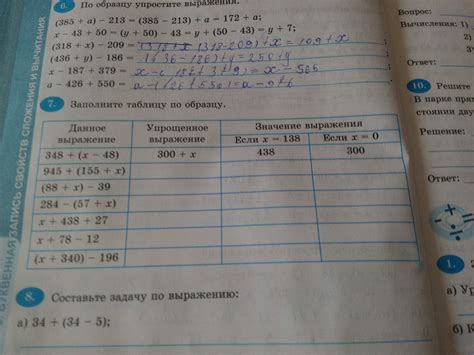 6. По образцу упростите выражения.
(385 + a) − 213 = (385 − 213) + a = 172 + a;
x − 43 + 50 = (y + 50) − 43 = y + (50 − 43) = y + 7;
(318 + x) − 209 = (318-209)+x=109+x
(436 + y) − 186 = (436-186)+y=250+y
x − 187 + 379 =
a − 426 + 550 =
7. Заполните таблицу по образцу.
Данное выражение Упрощенное выражение Значение выражения
Если x = 138 Если x = 0
348 + (x − 48) 300 + x 438 300
945 + (155 + x)
(88 + x) − 39
284 − (57 + x)
x + 438 + 27
x + 78 − 12
(x + 340) − 196
8. Составьте задачу по выражению:
а) 34 + (34 − 5);
БУКВЕННАЯ ЗАПИСЬ СВОЙСТВ СЛОЖЕНИЯ И ВЫЧИТАНИЯ
Вопрос:
Вычисления: 1)
2)
Ответ:
10. Решите
В парке
стоянии
Решение:
Ответ:
1.
а)
б)